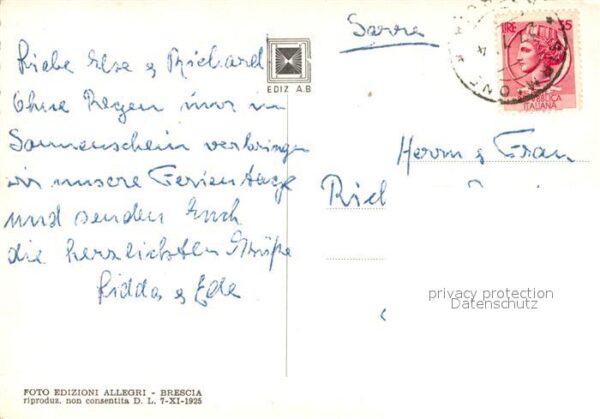 Liebe Else & Richard
Ohne Regen nur im
Sonnenschein verbringen
wir unsere Ferientage
und senden Euch
die herzlichsten Grüße
& Ede
EDIZ A.B
Herrn & Frau
LIRE 35
REPUBBLICA
ITALIANA
privacy protection
Datenschutz
FOTO EDIZIONI ALLEGRI - BRESCIA
riproduz. non consentita D. L. 7-XI-1925